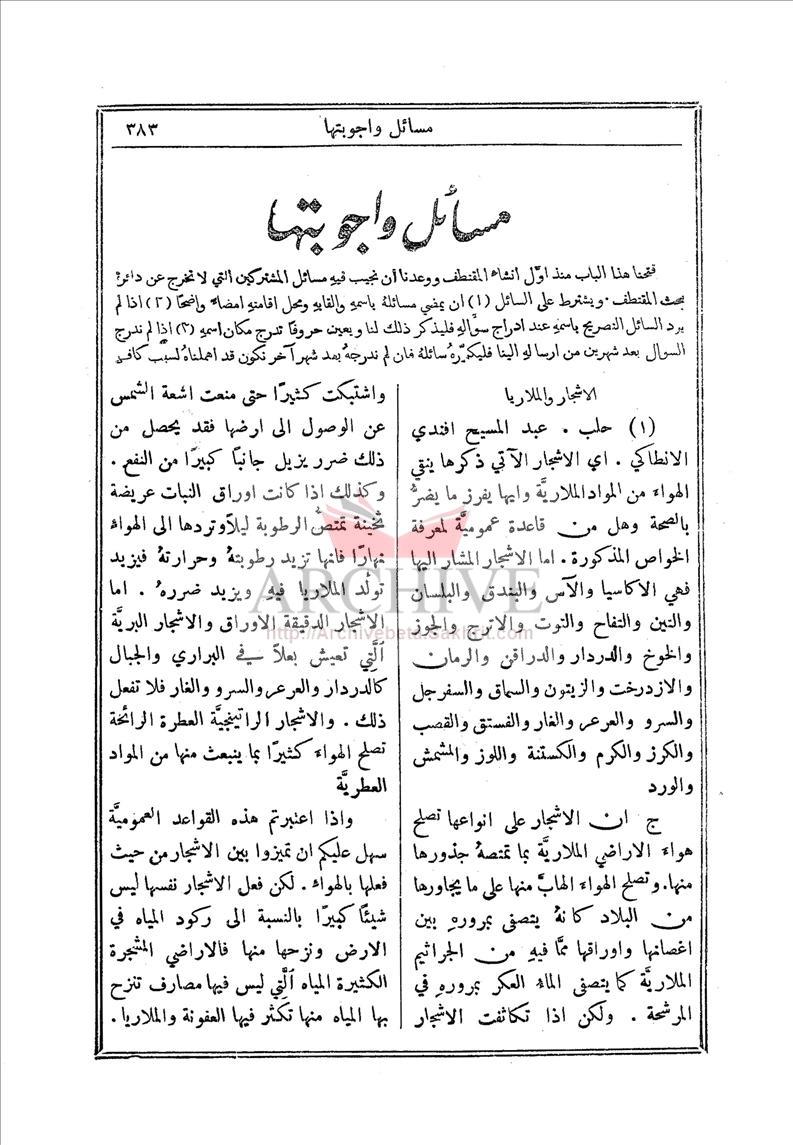 مسائل واجوبتها
٣٨٣
مسائل واجوبتها
فتحنا هذا الباب منذ اوَّل انشاء المقتطف ووعدنا أن نجيب فيهِ مسائل المشتركين التي لا تخرج عن دائرة
بحث المقتطف. ويشترط على السائل (١) ان يمضي مسائلهُ باسمهِ والقابهِ ومحل اقامتهِ امضاءً واضحًا (٢) اذا لم
يرد السائل التصريح باسمهِ عند ادراج سؤالهِ فليذكر ذلك لنا ويعين حروفًا تدرج مكان اسمهِ (٣) اذا لم ندرج
السوال بعد شهرين من ارسالهِ الينا فليكرّرهُ سائلهُ فان لم ندرجهُ بعد شهر آخر نكون قد اهملناهُ لسبب كافٍ
الاشجار والملاريا
(١) حلب . عبد المسيح افندي
الانطاكي . اي الاشجار الآتي ذكرها ينقي
الهواء من المواد الملاريَّة وايها يفرز ما يضرُّ
بالصحة وهل من قاعدة عموميَّة لمعرفة
الخواص المذكورة . اما الاشجار المشار اليها
فهي الاكاسيا والآس والبندق والبلسان
والتين والتفاح والتوت والاترج والجوز
والخوخ والدردار والدراقن والرمان
والازدرخت والزيتون والسماق والسفرجل
والسرو والعرعر والغار والفستق والقصب
والكرز والكرم والكستنة واللوز والمشمش
والورد
ج ان الاشجار على انواعها تصلح
هواء الاراضي الملاريَّة بما تمتصهُ جذورها
منها. وتصلح الهواء الهابَّ منها على ما يجاورها
من البلاد كانهُ يتصفى بمرورهِ بين
اغصانها واوراقها ممَّا فيهِ من الجراثيم
الملاريَّة كما يتصفى الماء العكر بمرورهِ في
المرشحة . ولكن اذا تكاثفت الاشجار
واشتبكت كثيرًا حتى منعت اشعة الشمس
عن الوصول الى ارضها فقد يحصل من
ذلك ضرر يزيل جانبًا كبيرًا من النفع .
وكذلك اذا كانت اوراق النبات عريضة
ثخينة تمتصُّ الرطوبة ليلاً وتردها الى الهواء
نهارًا فانها تزيد رطوبتهُ وحرارتهُ فيزيد
تولُّد الملاريا فيهِ ويزيد ضررهُ . اما
الاشجار الدقيقة الاوراق والاشجار البريَّة
الَّتي تعيش بعلاً في البراري والجبال
كالدردار والعرعر والسرو والغار فلا تفعل
ذلك . والاشجار الراتينجيَّة العطرة الرائحة
تصلح الهواء كثيرًا بما ينبعث منها من المواد
العطريَّة
واذا اعتبرتم هذه القواعد العموميَّة
سهل عليكم ان تميزوا بين الاشجار من حيث
فعلها بالهواء . لكن فعل الاشجار نفسها ليس
شيئًا كبيرًا بالنسبة الى ركود المياه في
الارض ونزحها منها فالاراضي المشجرة
الكثيرة المياه الَّتي ليس فيها مصارف تنزح
بها المياه منها تكثر فيها العفونة والملاريا .
ARCHIVE
http://Archivebeta.Sakhrit.com